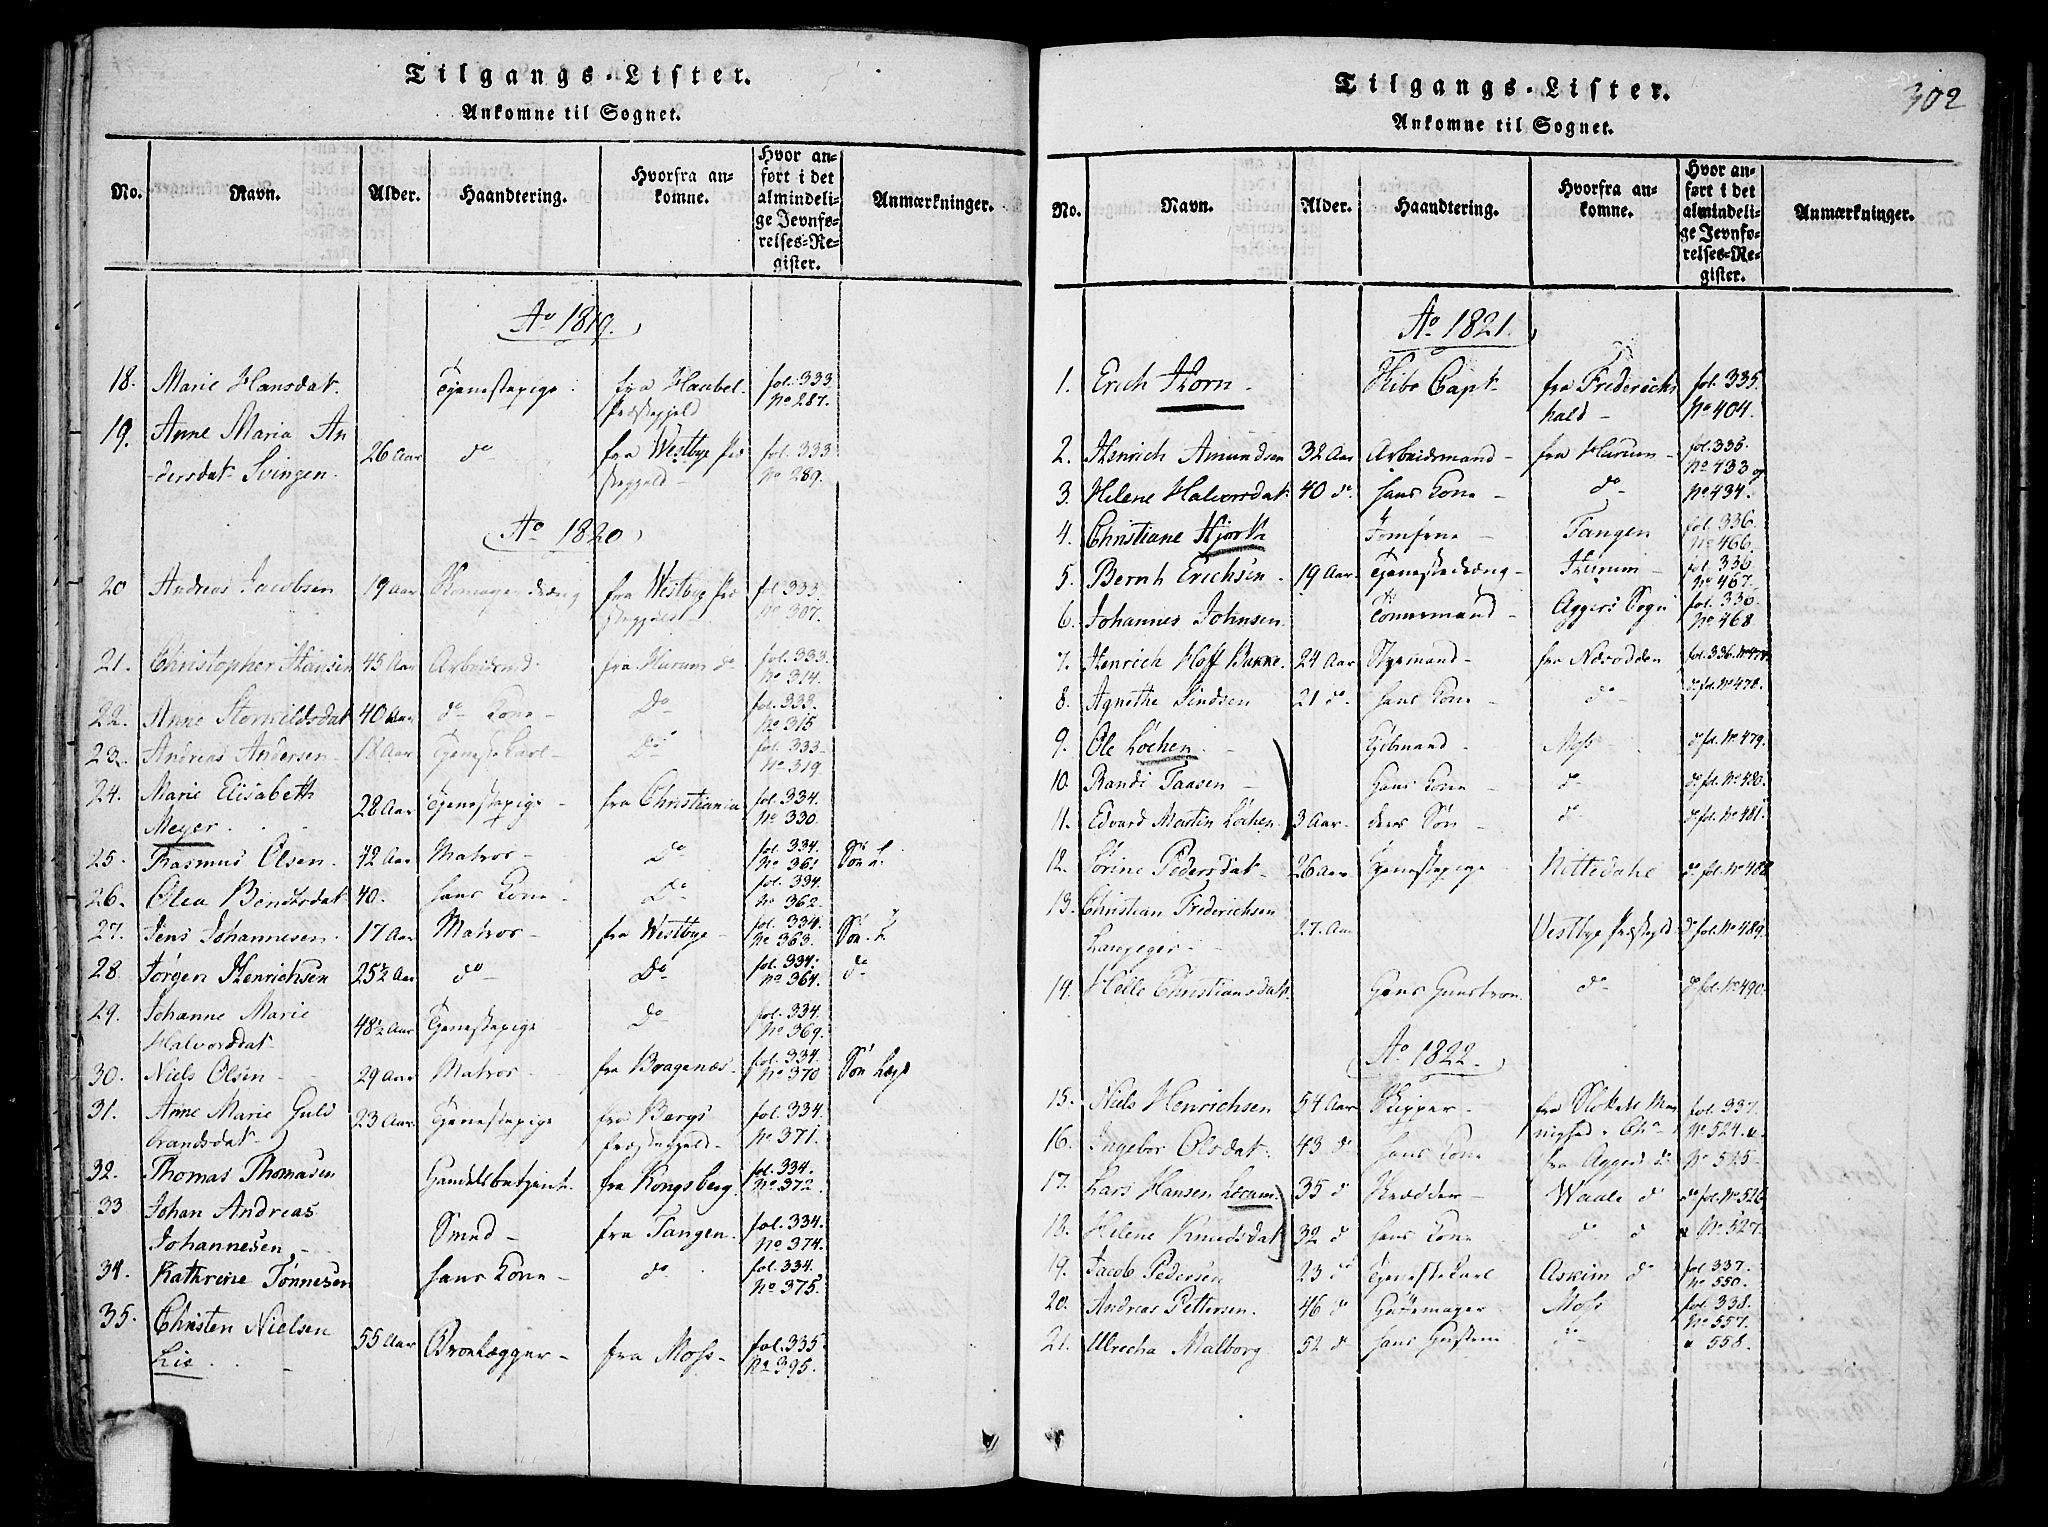 Tilgangs-Lister.
Ankomne til Sognet.
No. Navn. Alder. Haandtering. Hvorfra ankomne. Hvor anført i det almindelige Jevnførelses-Register. Anmærkninger.
Ao 1819.
18. Marie Hansdat. Tjenestepige fra Haabel fol. 333.
Præstegjeld No 287.
19. Anne Maria An
dersdat Svingen. 26 Aar do fra Westbye Præ fol. 333
stegjeld No 289.
Ao 1820
20 Andreas Jacobsen 19 Aar fra Westbye Præ fol 333.
stegjeld No 307.
21. Christopher Hansen 45 Aar Arbeidsmd. fra Hurum do fol. 333.
No 314.
22. Anne 40 Aar do Kone Do fol. 333.
No 315
23. Andreas Andersen 18 Aar Tjenestekarl Do fol. 333.
No 319
24. Marie Elisabeth
Meyer. 28 Aar Tjenestepige fra Christiania fol. 334.
No 330
25. Rasmus Olsen. 42 Aar Matros Do fol. 334.
No 361
26. Olea Bendtsdat 40. hans Kone Do fol. 334.
No 362.
27. Jens Johannesen. 17 Aar Matros fra Westbye fol. 334.
No 363.
28 Jørgen Henrichsen 25½ Aar do Do fol. 334. do
No 364.
29. Johanne Marie
Halvorsdat 48½ Aar Tjenestepige Do fol. 334
No 369.
30. Niels Olsen 29 Aar Matros fra Bragenæs fol. 334.
No 370
31. Anne Marie Guld
brandsdat 23 Aar Tjenestepige fra Bergs fol. 334.
Præstegjeld No 371.
32. Thomas Thomasen Handelsbetjent. fra Kongsberg fol. 334.
No 372.
33 Johan Andreas
Johannesen, Smed fra Tangen. fol. 334.
No 374.
34. Kathrine Tønnesen hans Kone do fol. 334.
No 375.
35. Christen Nielsen
Lie. 55 Aar Broelægger fra Moss fol. 335
No 395.
302
Tilgangs-Lister.
Ankomne til Sognet.
No. Navn. Alder. Haandtering. Hvorfra ankomne. Hvor anført i det almindelige Jevnførelses-Register. Anmærkninger.
Ao 1821.
1. Erich Horn Skibs Capt fra Frederichs fol. 335.
hald No 404.
2. Henrich Amundsen 32 Aar Arbeidsmand fra Hurum fol. 335.
No 433 og
3. Helene Halvorsdat. 40 do hans Kone do No 434.
4. Christiane Hjorth Jomfrue Tangen fol. 336.
No 466.
5. Bernh Erichsen 19 Aar Tjenestedreng Hurum fol. 336
No 467.
6. Johannes Johnsen Tømmermand Aggers Sogn fol. 336.
No 468
7. Henrich Hoff Bakke 24 Aar Styrmand fra Næsodden fol. 336.
8. Agnethe 21 do hans Kone do do fol. No 478.
9. Ole Løchen. Kjøbmand Moss do fol. No 479.
10. Randi Faasen hans Kone do do fol. No 480.
11. Edvard Martin Løchen. 3 Aar. deres Søn do do fol. No 481.
12. Sørine Pedersdat 26 Aar Tjenestepige Nittedahl do fol. No 488
13. Christian Frederichsen
27. Aar Vestbye Præstegjld do fol. No 489.
14. Helle Christiansdat. Hans Hustroe. do do fol. No 490.
Ao 1822.
15. Niels Henrichsen 54 Aar Skipper fra Slotets Me fol. 337.
nighed No 524.
16. Ingebor Olsdat. 43 do hans Kone fra Aggers do No 525
17. Lars Hansen 35 do Skrædder Waale do do fol. No 526
18. Helene Knudsdat 32 do hans Kone do do No 527.
19. Jacob Pedersen 23 do Tjenestekarl Askim do fol 337.
No 550.
20. Andreas Pettersen. 46 do Moss fol. 338.
No 557.
21. Ulrecha Malborg 52 do hans do 558.